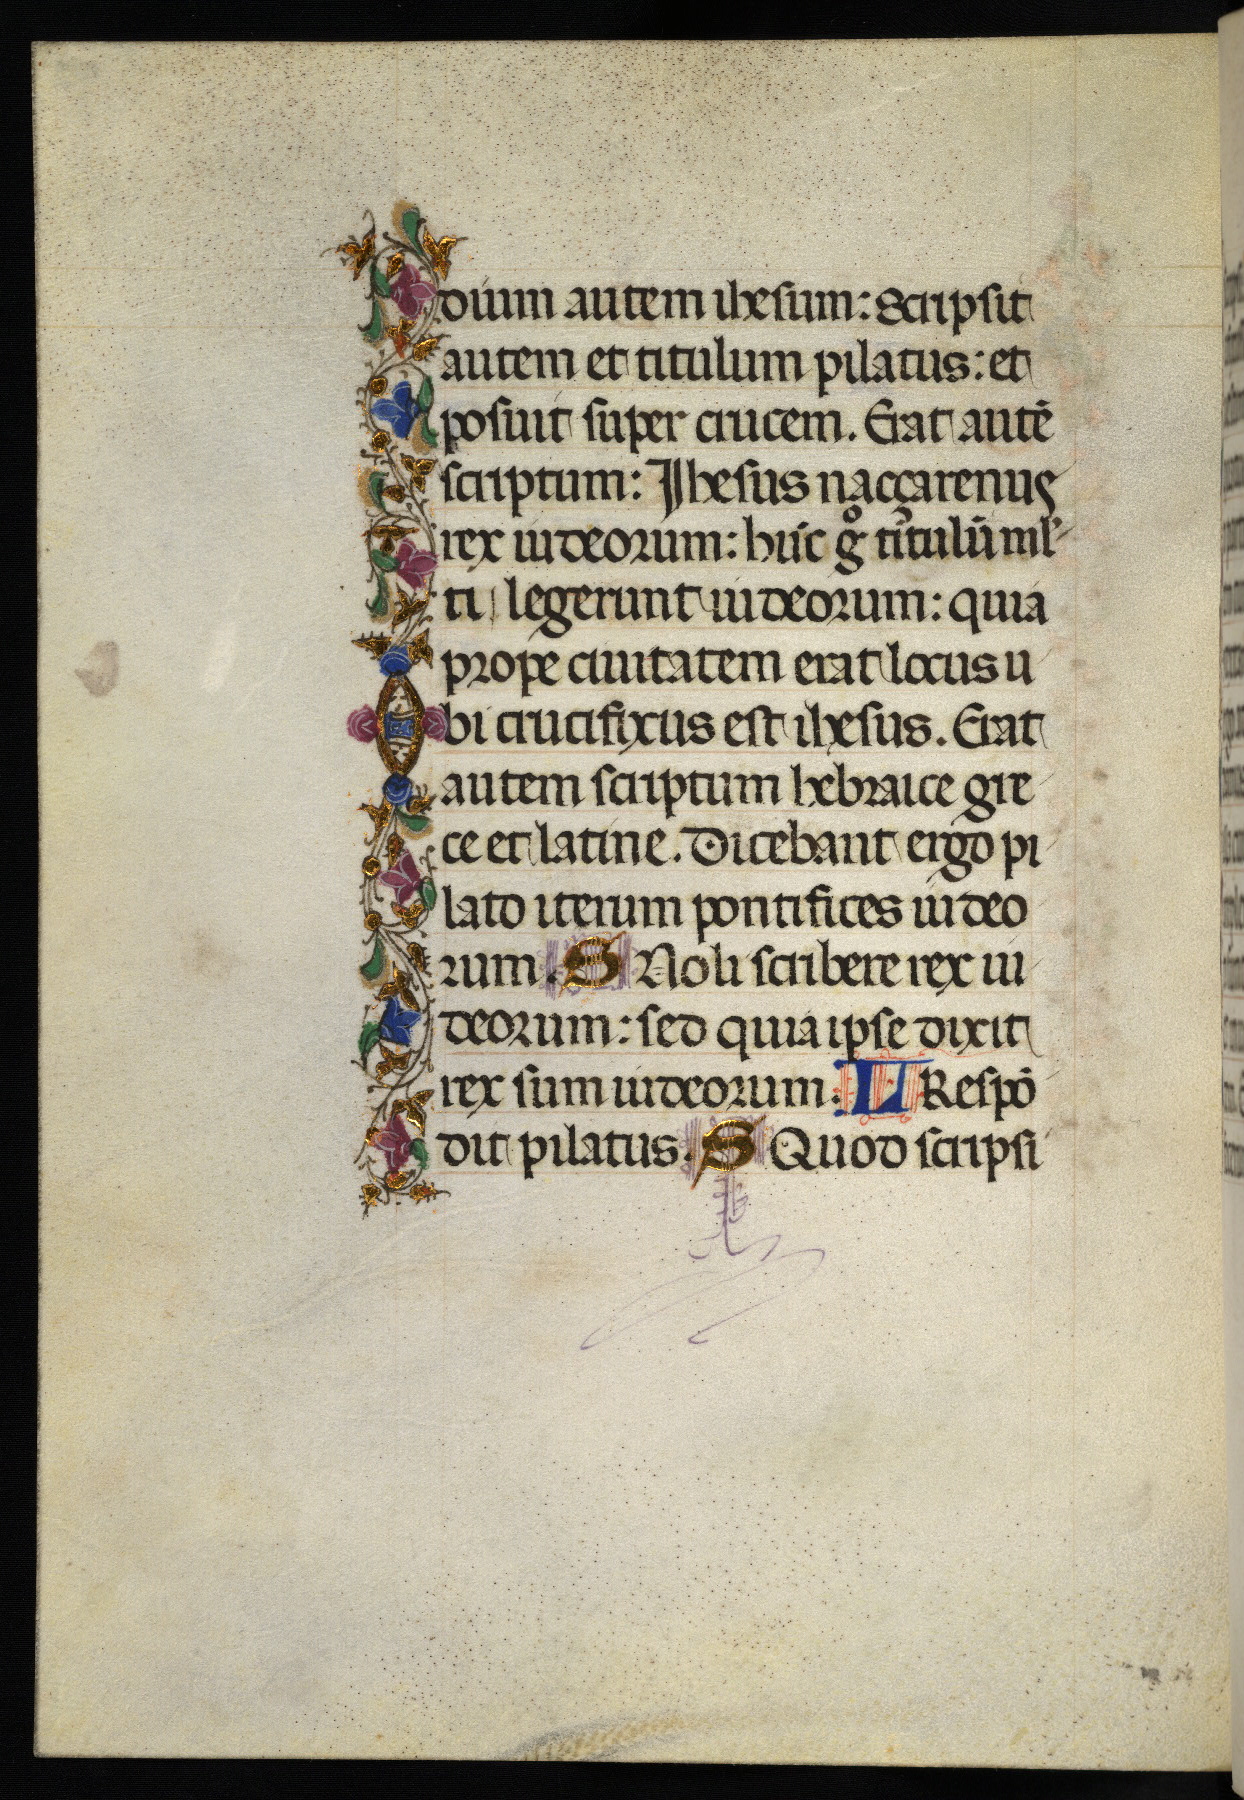 dium autem ihesum: Scripsit
autem et titulum pilatus: et
posuit super crucem. Erat autē
scriptum: Jhesus naççarenus
rex iudeorum: hūc gͦ titulū ml̛
ti legerunt iudeorum: quia
prope ciuitatem erat locus u
bi crucifixus est ihesus. Erat
autem scriptum hebraice gre
ce et latine. Dicebant ergo pi
lato iterum pontifices iudeo
rum. S Noli scribere rex iu
deorum: sed quia ipse dixit
rex sum iudeorum. L Respō
dit pilatus. S Quod scripsi